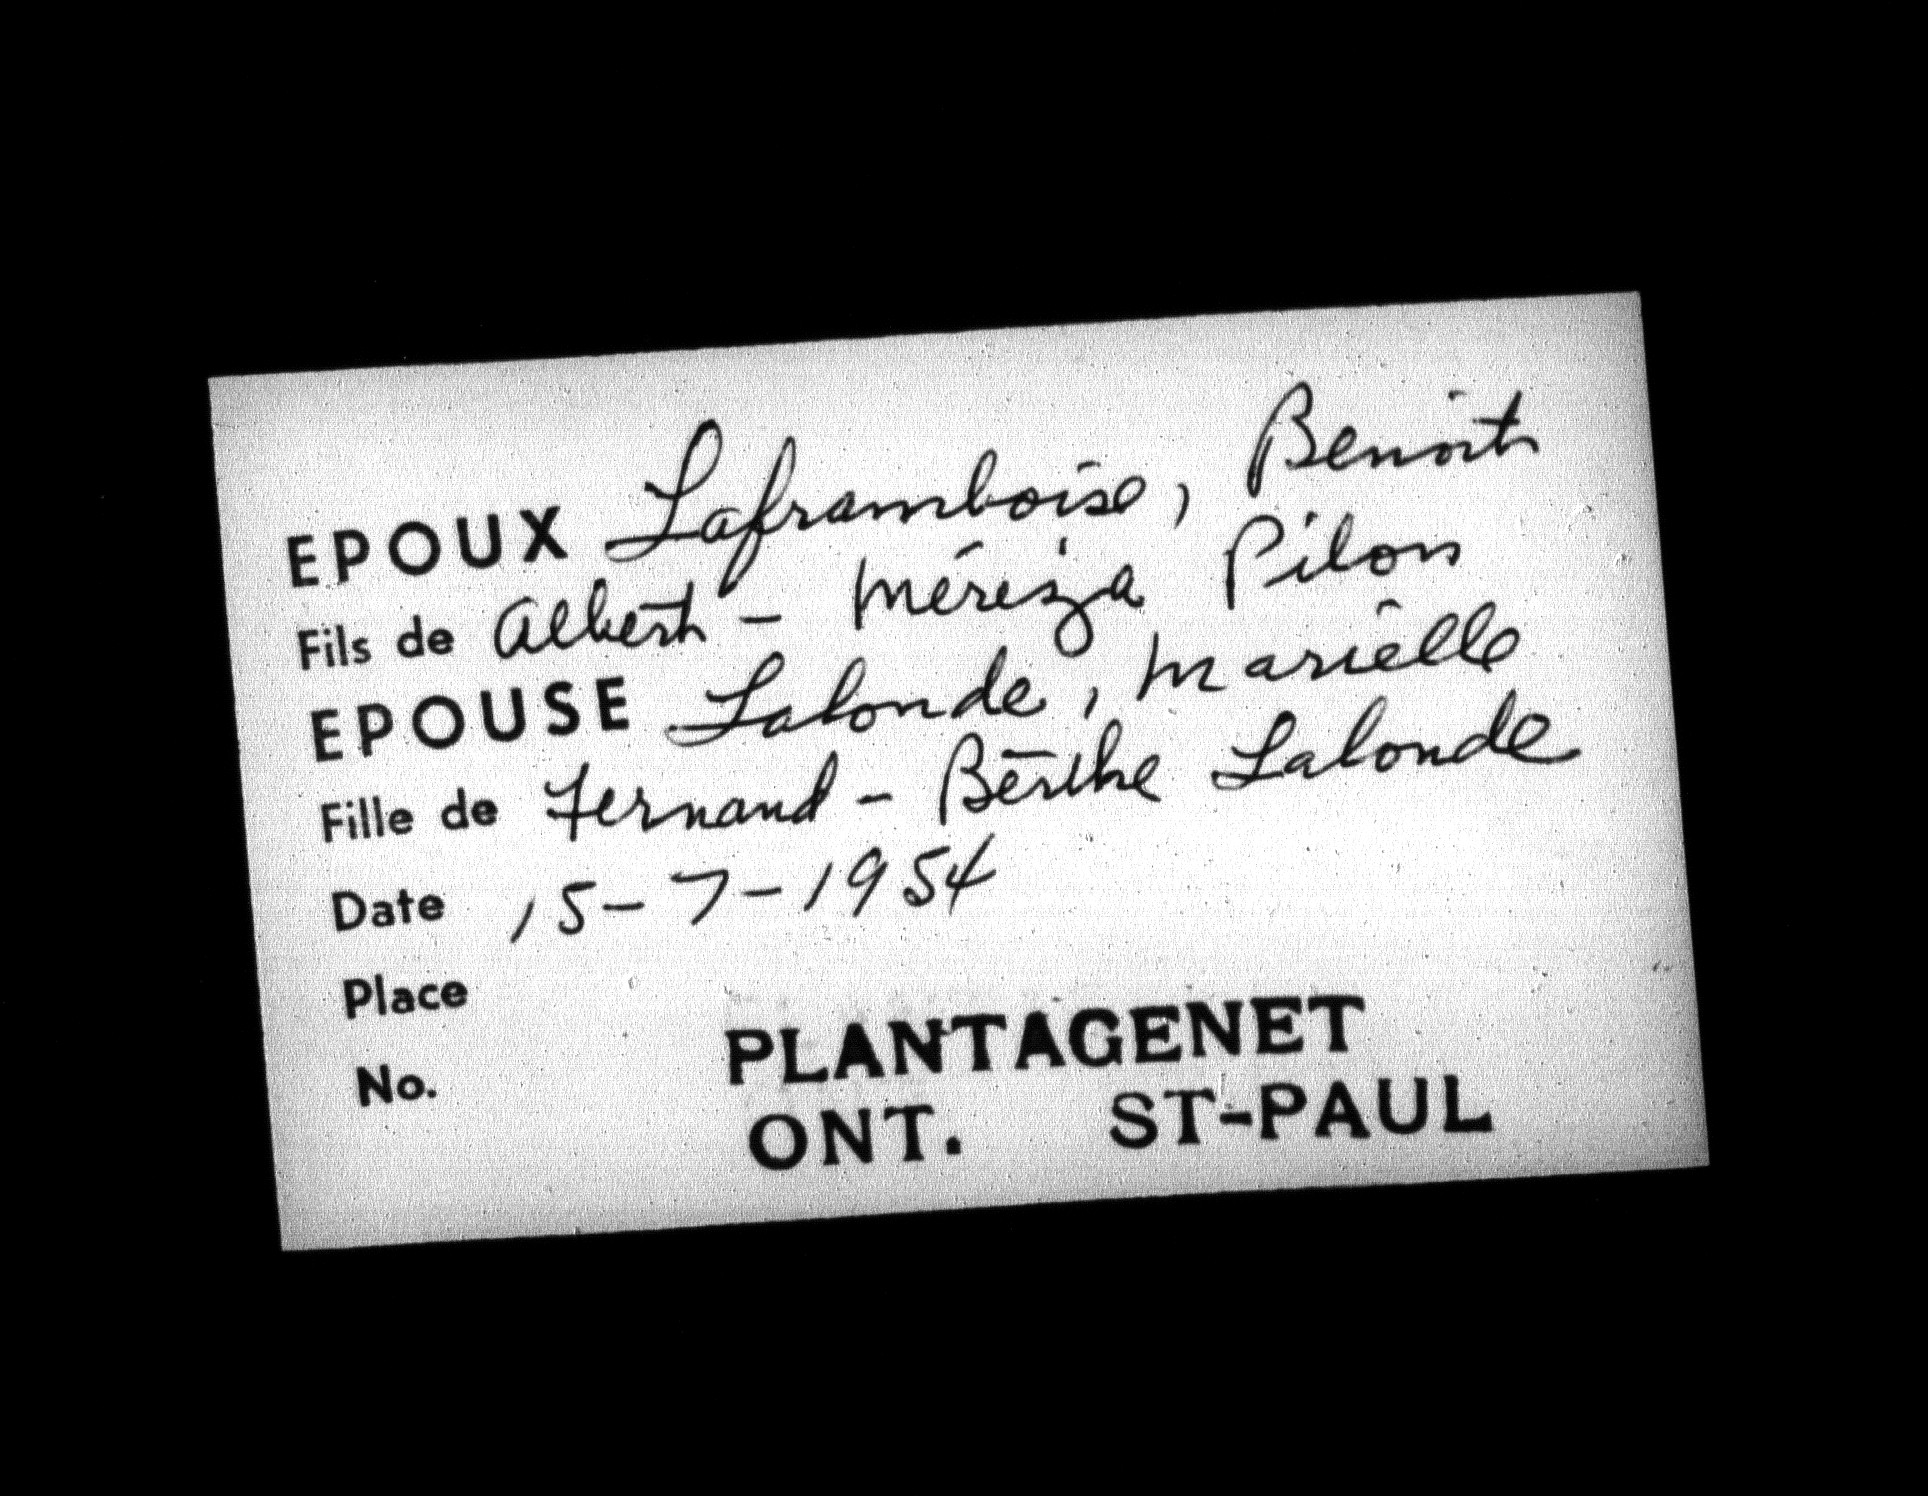 EPOUX Laframboise, Benoit
Fils de Albert - Méreiza Pilon
EPOUSE Lalonde, Marielle
Fille de Fernand - Berthe Lalonde
Date 15-7-1954
Place
No.
PLANTAGENET
ONT. ST-PAUL